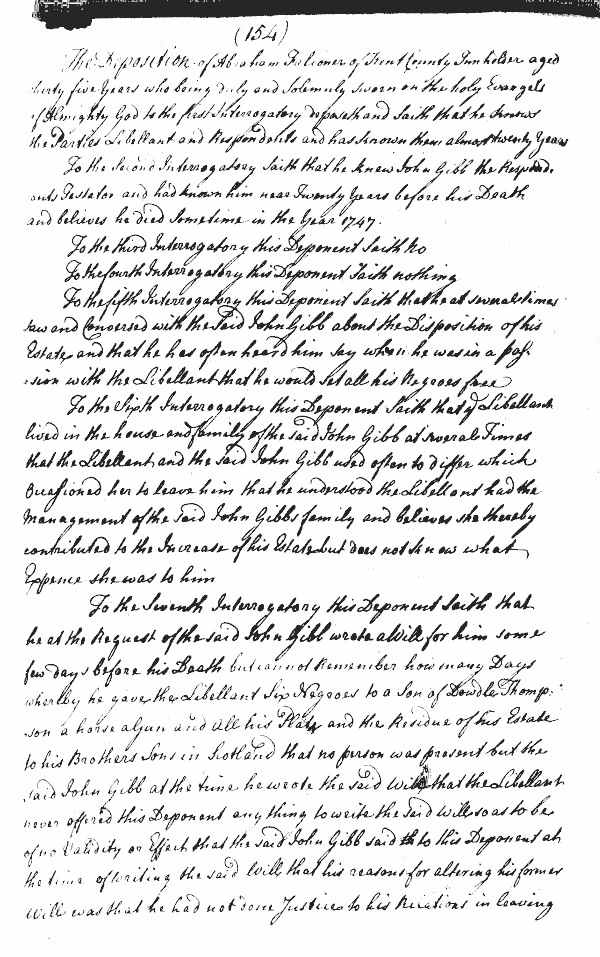 (154)
The Deposition of Abraham Falconer of Kent County Innholder aged
thirty five Years who being duly and Solemnly Sworn on the holy Evangels
of Almighty God to the first Interrogatory deposeth and Saith that he knows
the Parties Libellant and Respondents and has known them almost twenty Years
To the Second Interrogatory Saith that he knew John Gibb the Respond.
ents Testator and had known him near Twenty Years before his Death
and believes he died Sometime in the Year 1747.
To the third Interrogatory this Deponent Saith No
To the fourth Interrogatory this Deponent Saith nothing
To the fifth Interrogatory this Deponent Saith that he at several times
saw and Conversed with the Said John Gibb about the Disposition of his
Estate and that he has often heard him say when he was in a pas-
sion with the Libellant that he would set all his Negroes free
To the Sixth Interrogatory this Deponent Saith that ye Libellant
lived in the house and family of the said John Gibb at several Times
that the Libellant and the said John Gibb used often to differ which
Occasioned her to leave him that he understood the Libellant had the
Management of the Said John Gibbs family and believes she thereby
contributed to the Increase of his Estate but does not know what
Expence she was to him
To the Seventh Interrogatory this Deponent Saith that
he at the Request of the said John Gibb wrote a Will for him some
few days before his Death but cannot Remember how many Days
whereby he gave the Libellant Six Negroes to a Son of Dowdle Thomp-
son a horse a Gun and all his Plate and the Residue of his Estate
to his Brothers Sons in Scotland that no person was present but the
said John Gibb at the time he wrote the said Will that the Libellant
never offered this Deponent any thing to write the said Will so as to be
of no Validity or Effect that the said John Gibb said to this Deponent at
the time of writing the said Will that his reasons for altering his former
Will was that he had not done Justice to his Relations in leaving